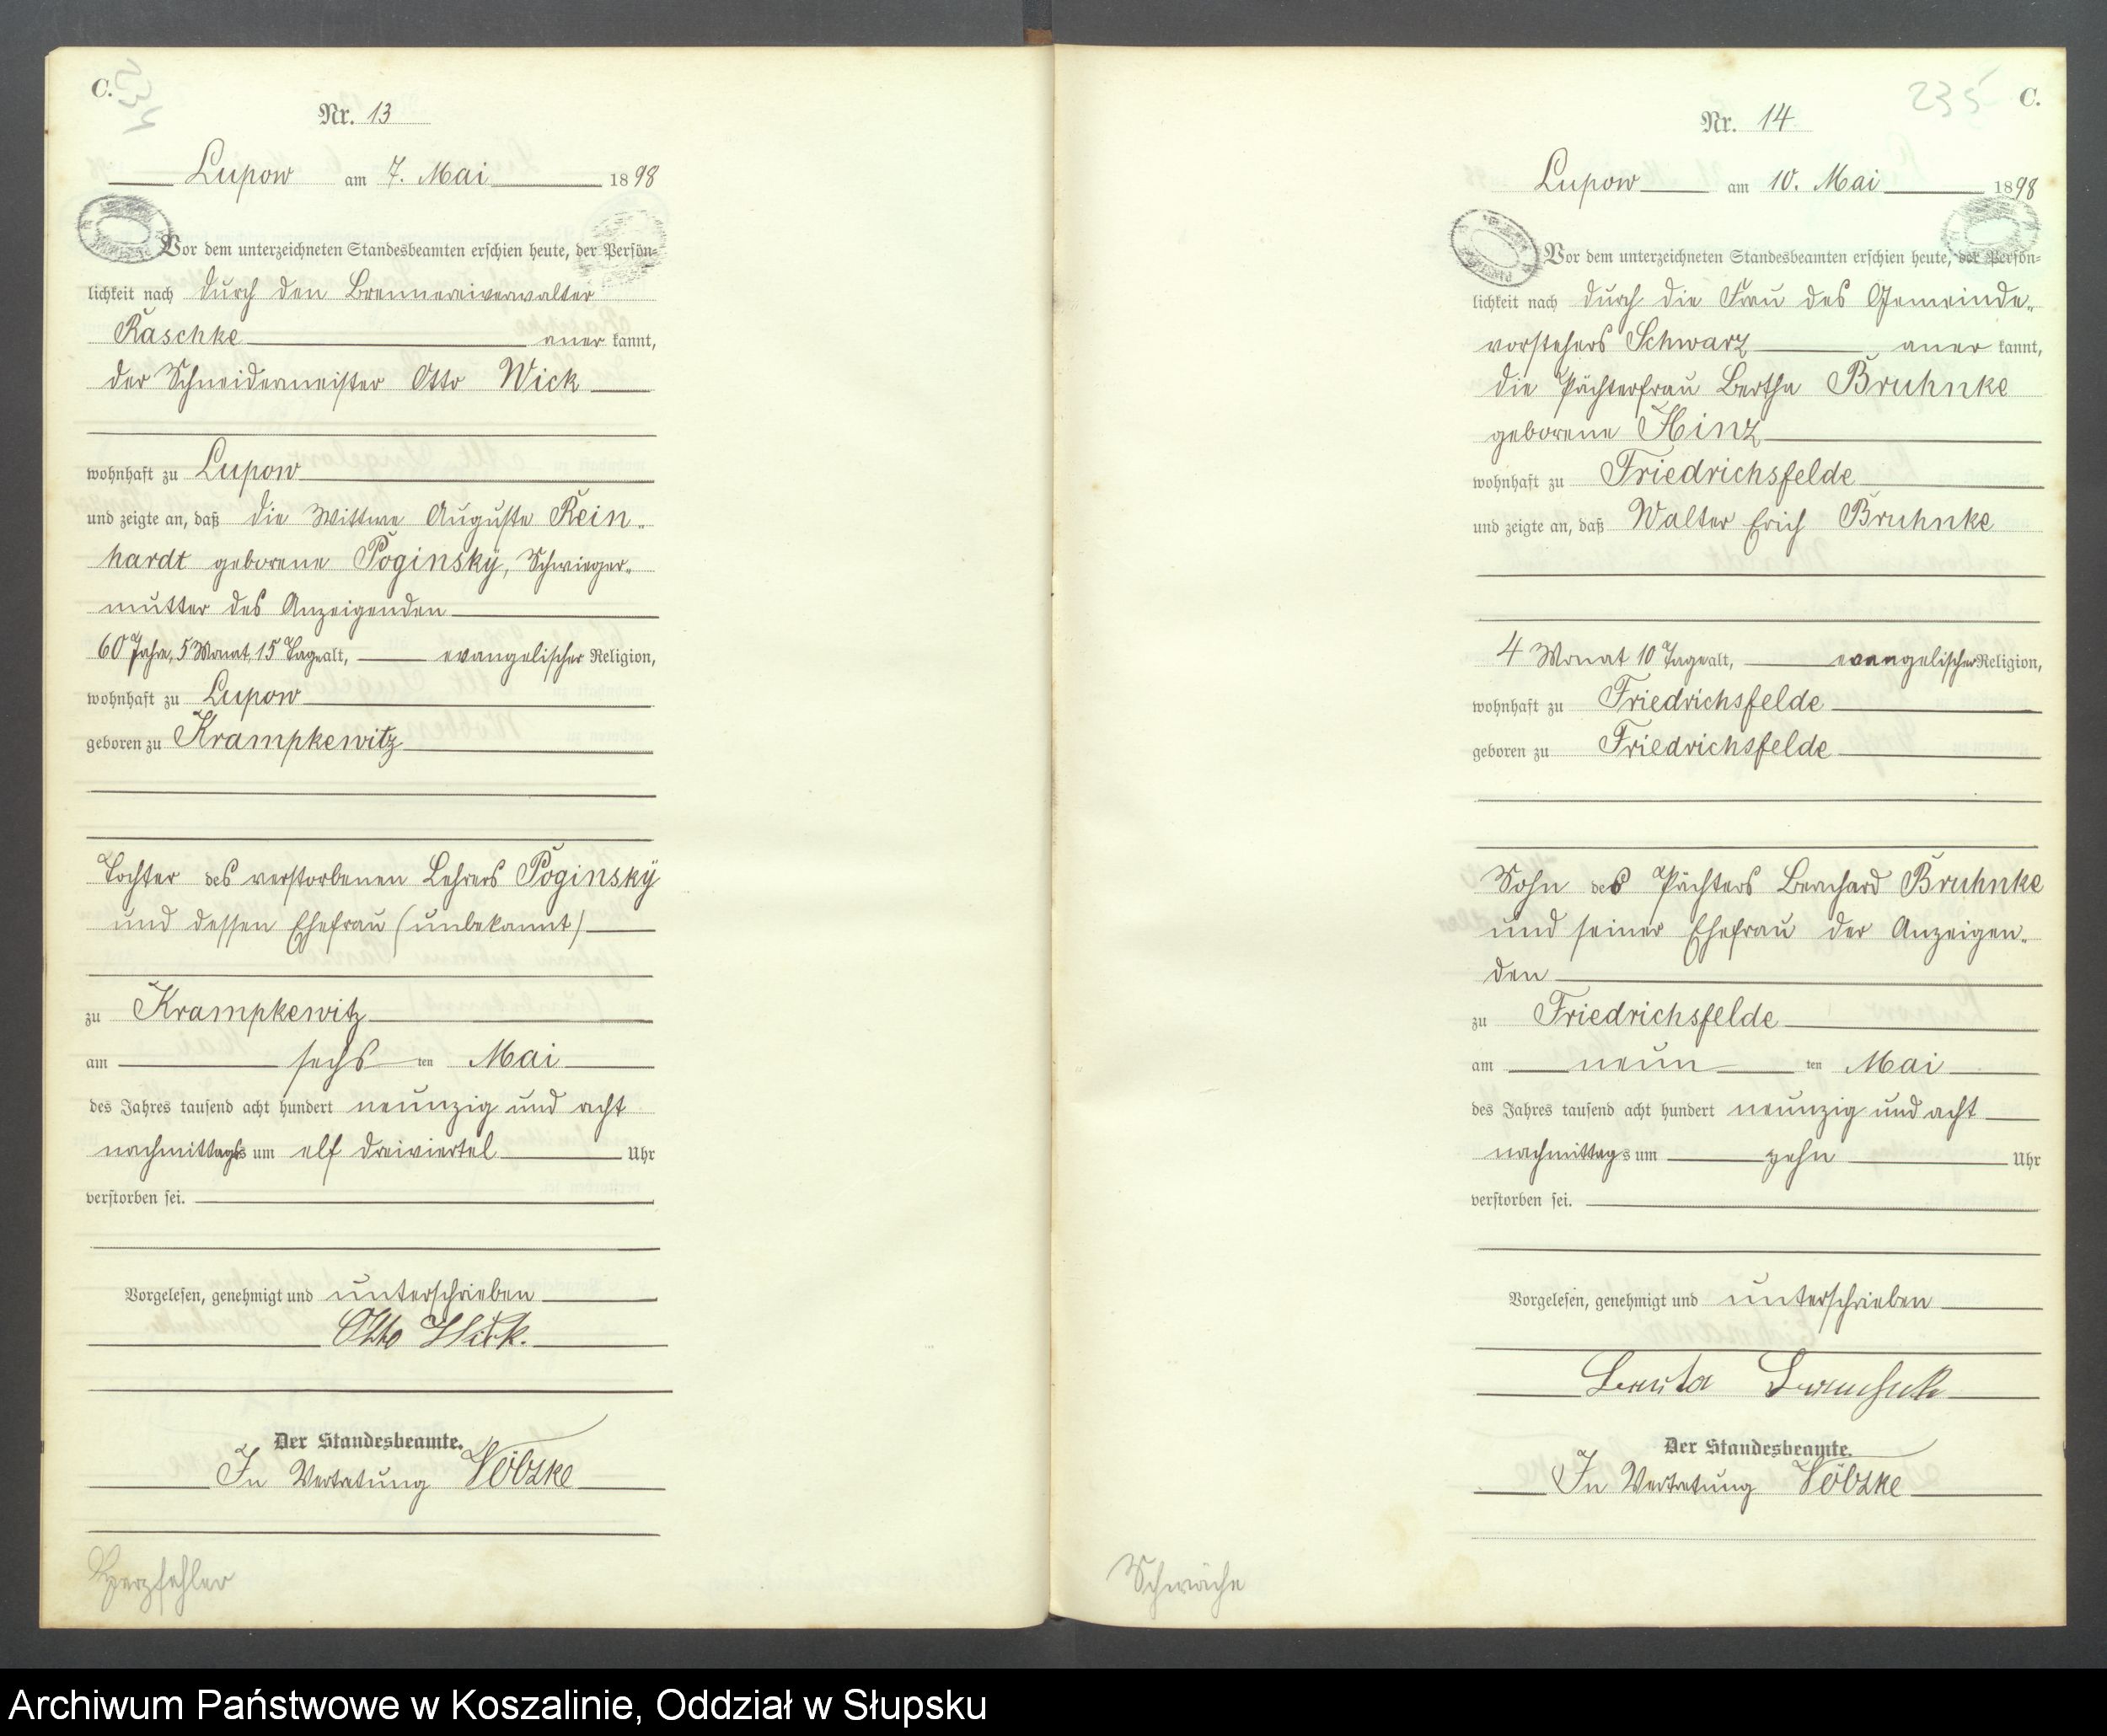 C.
234
Nr. 13
Lupow am 7. Mai 1898
Vor dem unterzeichneten Standesbeamten erschien heute, der Persön-
lichkeit nach durch den Brennereiverwalter
Raschke aner kannt,
der Schneidermeister Otto Wick
wohnhaft zu Lupow
und zeigte an, daß die Wittwe Auguste Rein-
hardt geborene Poginsky, Schwieger-
mutter des Anzeigenden
60 Jahre, 5 Monat, 15 Tage alt, evangelischer Religion,
wohnhaft zu Lupow
geboren zu Krampkewitz
Tochter des verstorbenen Lehrers Poginsky
und dessen Ehefrau (unbekannt)
zu Krampkewitz
am sechs ten Mai
des Jahres tausend acht hundert neunzig und acht
nachmittags um elf dreiviertel Uhr
verstorben sei.
Vorgelesen, genehmigt und unterschrieben
Otto Wick.
Der Standesbeamte.
In Vertretung Völzke
Herzfehler
235 C.
Nr. 14
Lupow am 10. Mai 1898
Vor dem unterzeichneten Standesbeamten erschien heute, der Persön-
lichkeit nach durch die Frau des Gemeinde-
vorstehers Schwarz aner kannt,
die Pächterfrau Bertha Bruhnke
geborene Hinz
wohnhaft zu Friedrichsfelde
und zeigte an, daß Walter Erich Bruhnke
4 Monat 10 Tage alt, evangelischer Religion,
wohnhaft zu Friedrichsfelde
geboren zu Friedrichsfelde
Sohn des Pächters Bernhard Bruhnke
und seiner Ehefrau der Anzeigen-
den
zu Friedrichsfelde
am neun ten Mai
des Jahres tausend acht hundert neunzig und acht
nachmittags um zehn Uhr
verstorben sei.
Vorgelesen, genehmigt und unterschrieben
Der Standesbeamte.
In Vertretung Völzke
Schwäche
Archiwum Państwowe w Koszalinie, Oddział w Słupsku